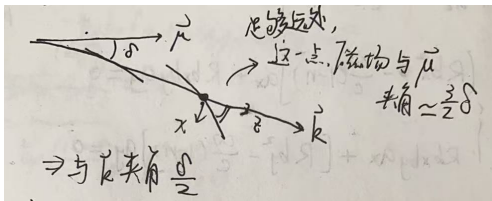 μ⃗
δ
足够远处,
这一点,磁场与 μ⃗
夹角 ≃ 3/2 δ
x z
k⃗
⇒ 与 k⃗ 夹角 δ/2